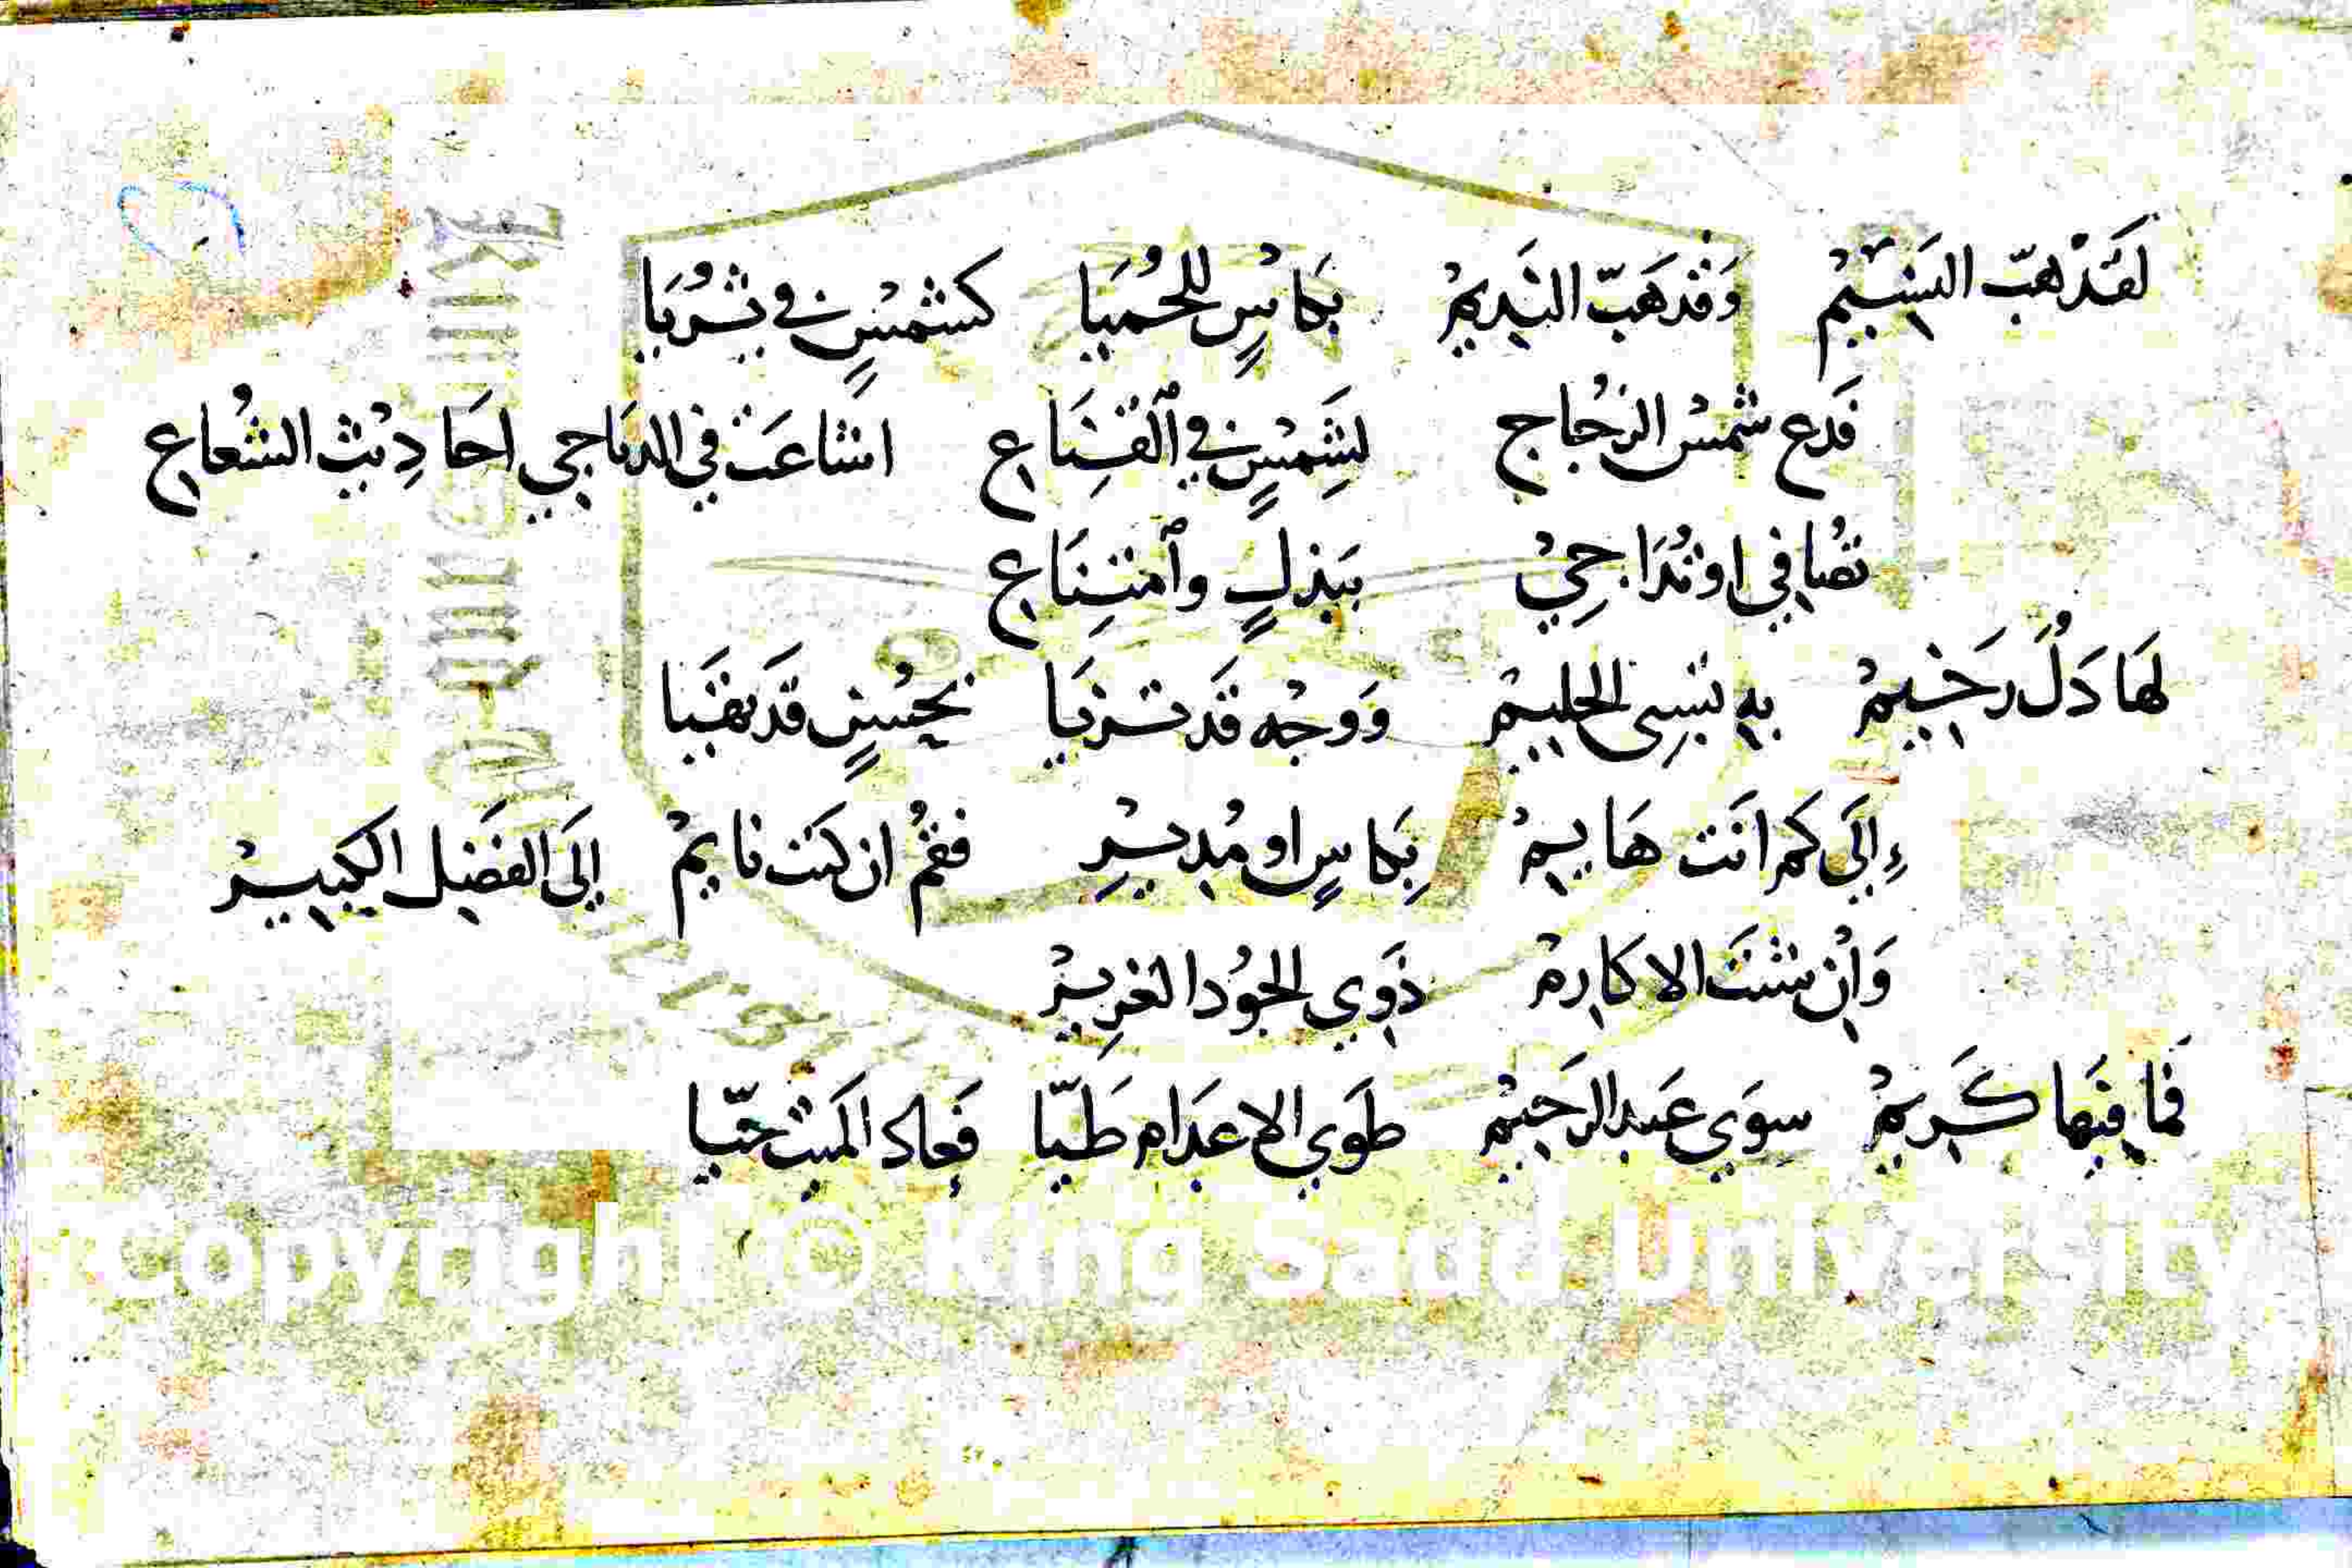 لَقَدْ هَبّ النَسِيْمْ وَقَدْ هَبّ النَدِيمْ بكَاسٍ للحُمَيا كشمْسٍ في ثُرَيا
فَدع شمْسْ الزجُاج لشَمْسٍ في ٱلقِنَاع اشاعَتْ في الدياجي احَادِيْث الشُعاع
تُصَافي اوتُدَاجِيْ ببَذلٍ وٱمتِنَاع
لهَا دَلُ رَخيمْ بهِ نسِى الحليمْ وَوجْه قَد تزيَا بحُسنٍ قَد تهَيَا
إِلَى كم انَت هَايمْ بِكاسٍ او مُديْرِ فقُمْ ان كنت نايمْ إلَى الفضَل الكبيرْ
وَانْ شئتَ الاكارمْ ذَوِي الجوُد الغزِيرْ
فمَا فيَها كَريمْ سوَي عَبد الرَحيْم طوَي الاعدَام طَيّا فَعاد المَيت حَيّا
Copyright © King Saud University